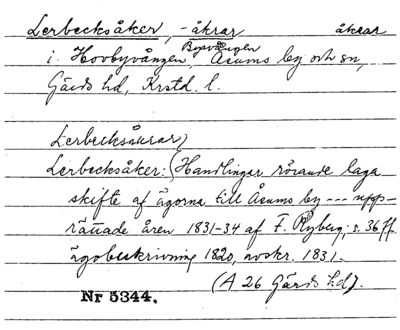 Lerbecksåker, -åkrar åkrar
i Hovbyvången, Byavången Åsums by och sn,
Gärds hd, Krstd. l.
Lerbecksåkrar)
Lerbecksåker: (Handlingar rörande laga
skifte af ägorna till Åsums by --- upp-
rättade åren 1831-34 af F. Ryberg; s. 36 ff.
ägobeskrivning 1820, avskr. 1831.
(A 26 Gärds hd).
Nr 5344.